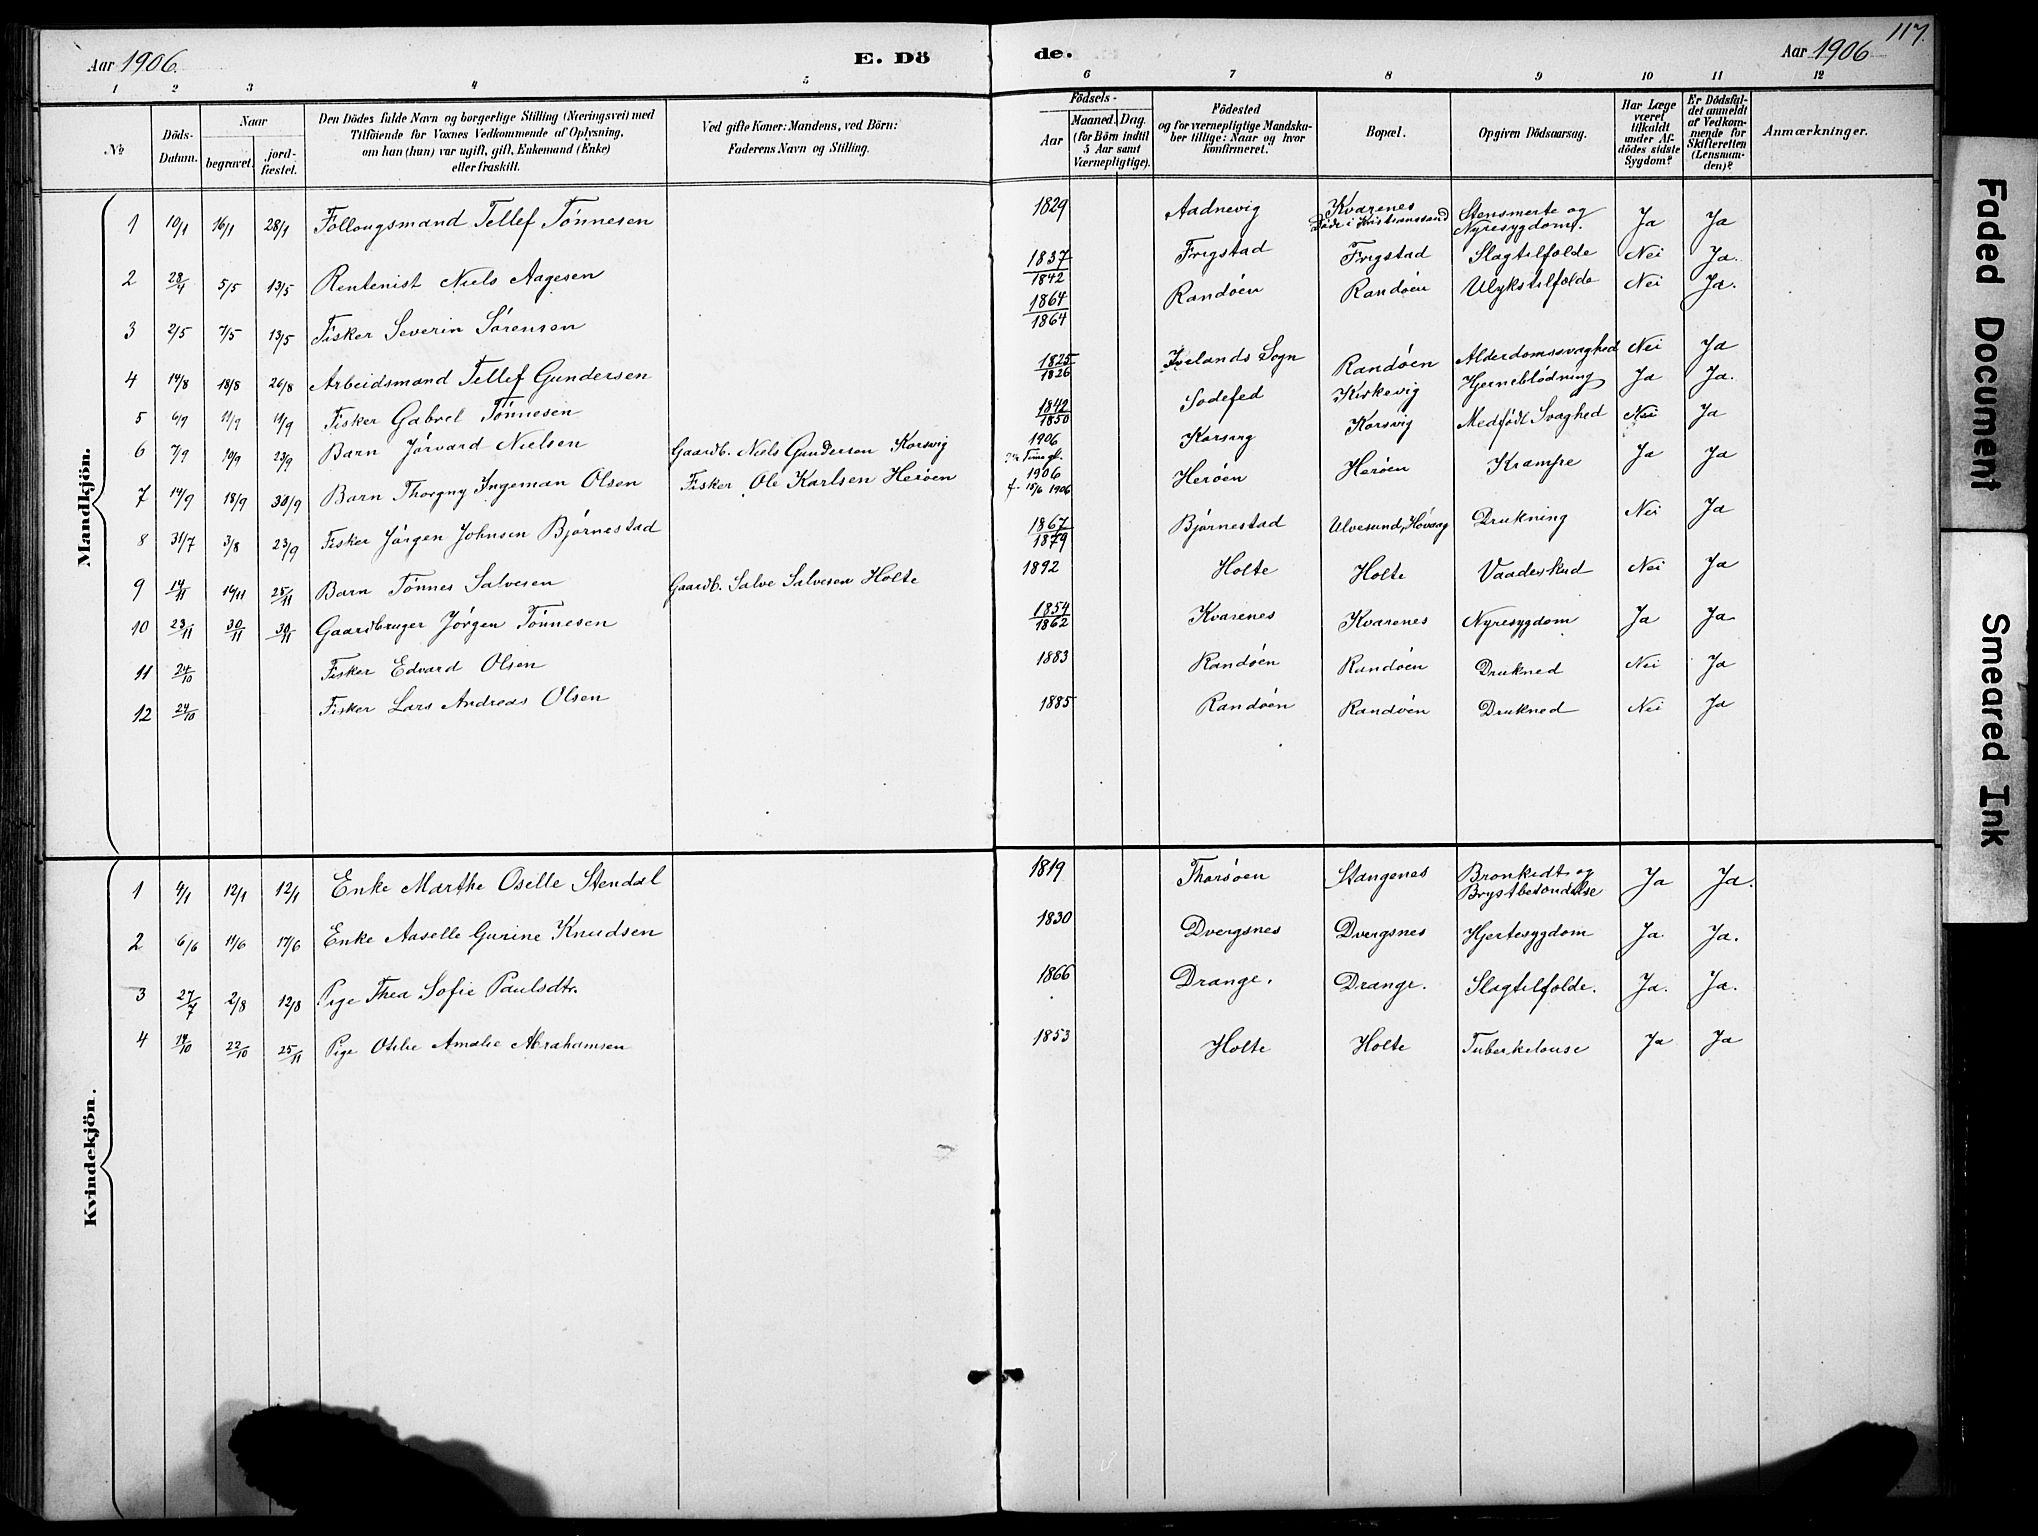 Aar 1906.
E. Dö
de.
Aar 1906
117.
1 2 3 4 5 6 7 8 9 10 11 12
No
Döds-Datum.
Naar
begravet.
jord-fæstet.
Den Dödes fulde Navn og borgerlige Stilling (Næringsvei) med
Tilföiende for Voxnes Vedkommende af Oplysning,
om han (hun) var ugift, gift, Enkemand (Enke)
eller fraskilt.
Ved gifte Koner: Mandens, ved Börn:
Faderens Navn og Stilling.
Födsels-
Aar
Maaned. Dag.
(for Börn indtil
5 Aar samt
Værnepligtige).
Födested
og for værnepligtige Mandska-
ber tillige: Naar og hvor
konfirmeret.
Bopæl.
Opgiven Dödsaarsag.
Har Læge
været
tilkaldt
under Af-
dödes sidste
Sygdom?
Er Dödsfal-
det anmeldt
af Vedkom-
mende for
Skifteretten
(Lensman-
den)?
Anmærkninger.
Mandkjön.
1 10/1 16/1 28/1 Föllougsmand Tellef Tönnesen 1829 Aadnevig Kvarenes Döde i Kristianssand Stensmerte og Nyresygdom. Ja Ja
2 28/4 5/5 13/5 Rentenist Niels Aagesen 1837/1842 Frigstad Frigstad Slagtilfælde Nei Ja.
3 2/5 7/5 13/5 Fisker Severin Sörensen 1864/1864 Randöen Randöen Ulykstilfælde Nei Ja.
4 14/8 18/8 26/8 Arbeidsmand Tellef Gundersen 1825/1826 Ivelands Sogn Randöen Alderdomssvaghed Nei Ja
5 6/9 11/9 11/9 Fisker Gabrel Tönnesen 1842/1850 Sodefed Kirkevig Hjerneblödning Ja Ja.
6 7/9 10/9 23/9 Barn Jörvard Nielsen Gaardb. Niels Gundersen Korsvig 1906 Korsvig Korsvig Medfödt Svaghed Nei Ja
7 14/9 18/9 30/9 Barn Thorgny Ingeman Olsen Fisker Ole Karlsen Heröen 1906 f. 15/6 1906 Heröen Heröen Krampe Ja Ja
8 31/7 3/8 23/9 Fisker Jörgen Johnsen Björnestad 1867/1879 Björnestad Ulvesund, Hövaag Drukning Nei Ja
9 14/11 14/11 25/11 Barn Tönnes Salvesen Gaardb. Salve Salvesen Holte 1892 Holte Holte Vaadeskud Nei Ja
10 23/11 30/11 30/11 Gaardbruger Jörgen Tönnesen 1854/1862 Kvarenes Kvarenes Nyresygdom Ja Ja
11 24/10 Fisker Edvard Olsen 1883 Randöen Randöen Druknede Nei Ja
12 24/10 Fisker Lars Andreas Olsen 1885 Randöen Randöen Druknede Nei Ja
Kvindekjön.
1 4/1 12/1 12/1 Enke Marthe Oselle Stendal 1819 Thorsöen Stangenes Bronkedt og Brystbetændelse Ja Ja.
2 6/6 11/6 17/6 Enke Aaselle Gurine Knudsen 1830 Dvergsnes Dvergsnes Hjertesygdom Ja. Ja.
3 27/7 2/8 12/8 Pige Thea Sofie Paulsdtr. 1866 Drange. Drange. Slagtilfælde. Ja. Ja.
4 18/10 22/10 25/11 Pige Otilie Amalie Abrahamsen 1853 Holte Holte Tuberkelouse Ja Ja
Faded Document
Smeared Ink